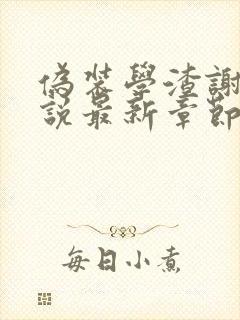 偽裝學渣謝
說最新章節
每日小煮